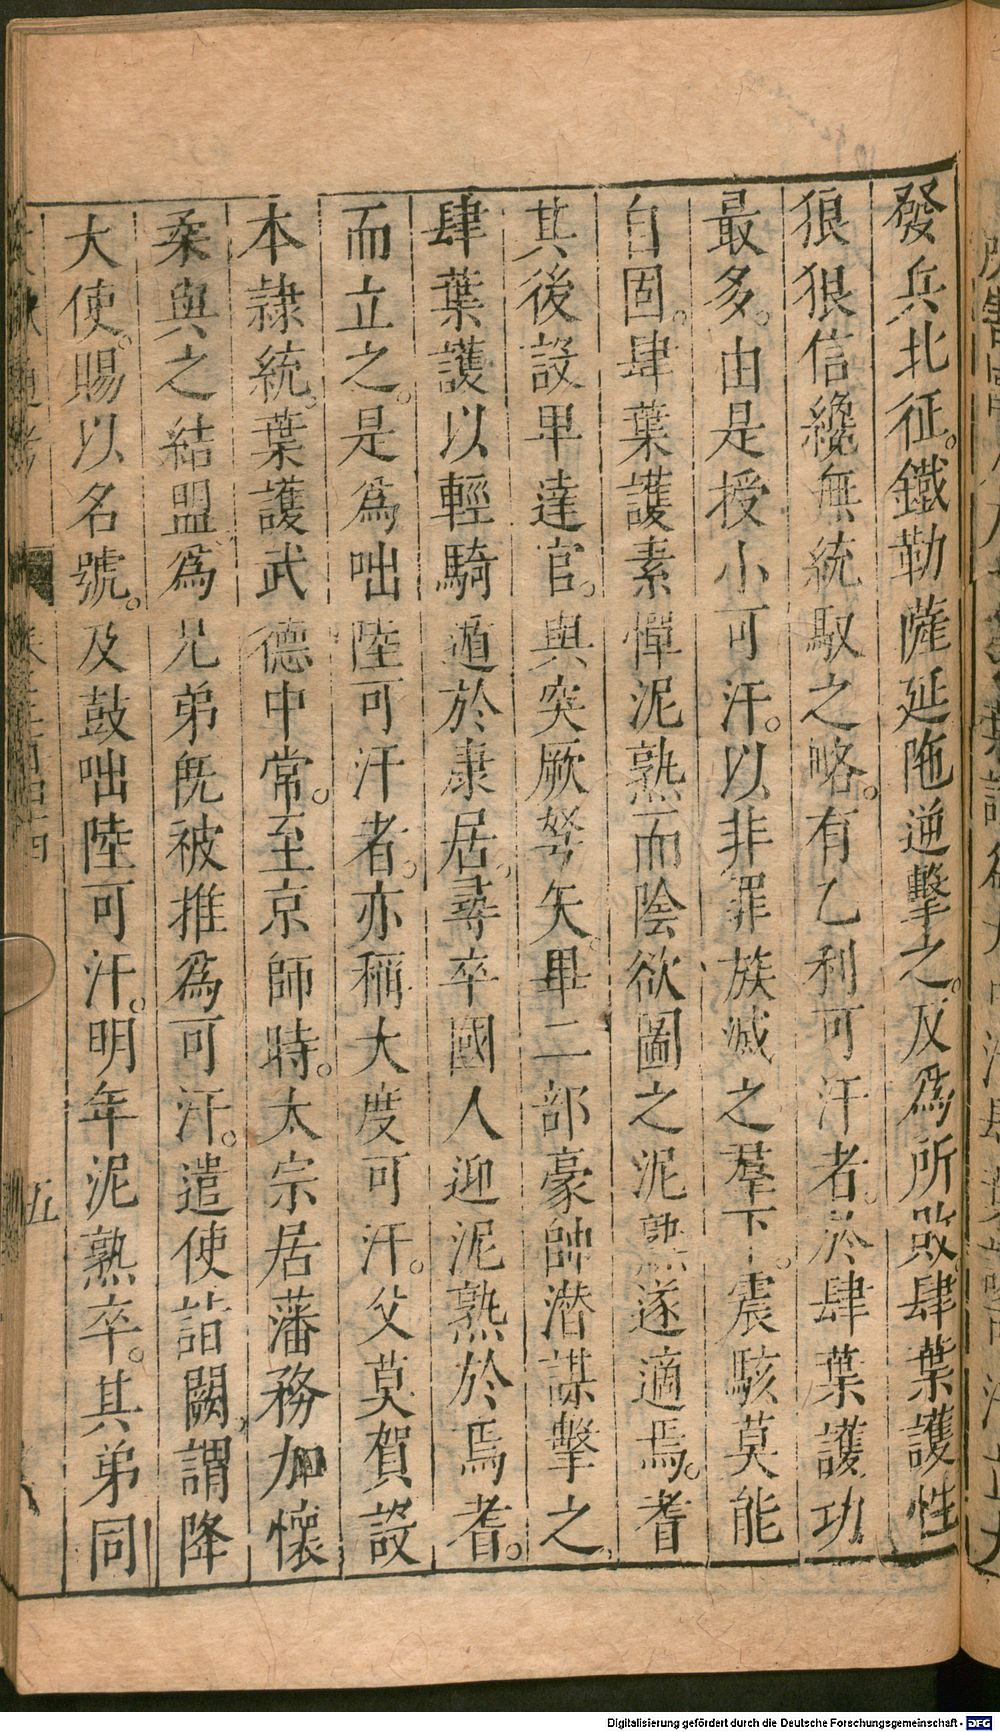 發兵北征。鐵勒薩延陁逆擊之。反爲所敗。肆葉護性
狼狠信纔無統馭之略。有乙利可汗者。於肆葉護功
最多。由是授小可汗。以非罪族滅之羣下。震駭莫能
自固。肆葉護素憚泥熟而陰欲圖之泥熟遂適焉。耆
其後設卑達官。與突厥弩矢。畢二部豪帥潜謀擊之
肆葉護以輕騎遁於康居。尋卒國人迎泥熟於焉耆。
而立之。是爲咄陸可汗者。亦稱大度可汗。父莫賀設
本隷統。葉護武德中常。至京師時。太宗居藩務加懷
柔與之結盟爲兄弟旣被推爲可汗。遣使詣闕謂降
大使。賜以名號。及鼓咄陸可汗。明年泥熟卒。其弟同
五
Digitalisierung gefördert durch die Deutsche Forschungsgemeinschaft - DFG